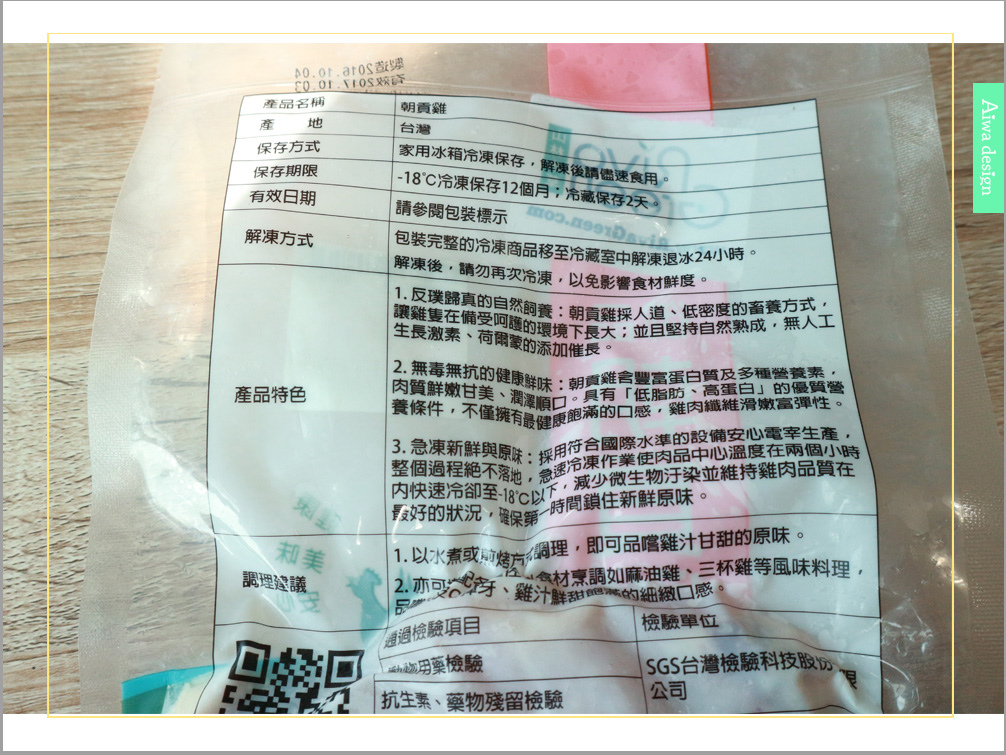 製造2016.10.04
有效2017.10.03
產品名稱 朝貢雞
產 地 台灣
保存方式 家用冰箱冷凍保存，解凍後請儘速食用。
保存期限 -18℃冷凍保存12個月；冷藏保存2天。
有效日期 請參閱包裝標示
解凍方式 包裝完整的冷凍商品移至冷藏室中解凍退冰24小時。
解凍後，請勿再次冷凍，以免影響食材鮮度。
產品特色
1. 反璞歸真的自然飼養：朝貢雞採人道、低密度的畜養方式，
讓雞隻在備受呵護的環境下長大；並且堅持自然熟成，無人工
生長激素、荷爾蒙的添加催長。
2. 無毒無抗的健康鮮味：朝貢雞含豐富蛋白質及多種營養素，
肉質鮮嫩甘美、潤澤順口。具有「低脂肪、高蛋白」的優質營
養條件，不僅擁有最健康飽滿的口感，雞肉纖維滑嫩富彈性。
3. 急凍新鮮與原味：採用符合國際水準的設備安心電宰生產，
整個過程絕不落地，急速冷凍作業使肉品中心溫度在兩個小時
內快速冷卻至-18℃以下，減少微生物汙染並維持雞肉品質在
最好的狀況，確保第一時間鎖住新鮮原味。
調理建議
1. 以水煮或煎烤方式調理，即可品嚐雞汁甘甜的原味。
2. 亦可 食材烹調如麻油雞、三杯雞等風味料理，
品 牙、雞汁鮮甜 的細緻口感。
通過檢驗項目 檢驗單位
動物用藥檢驗 SGS台灣檢驗科技股份 限
抗生素、藥物殘留檢驗 公司
健康
美味
安心
AivaGreen.com
Aiwa design